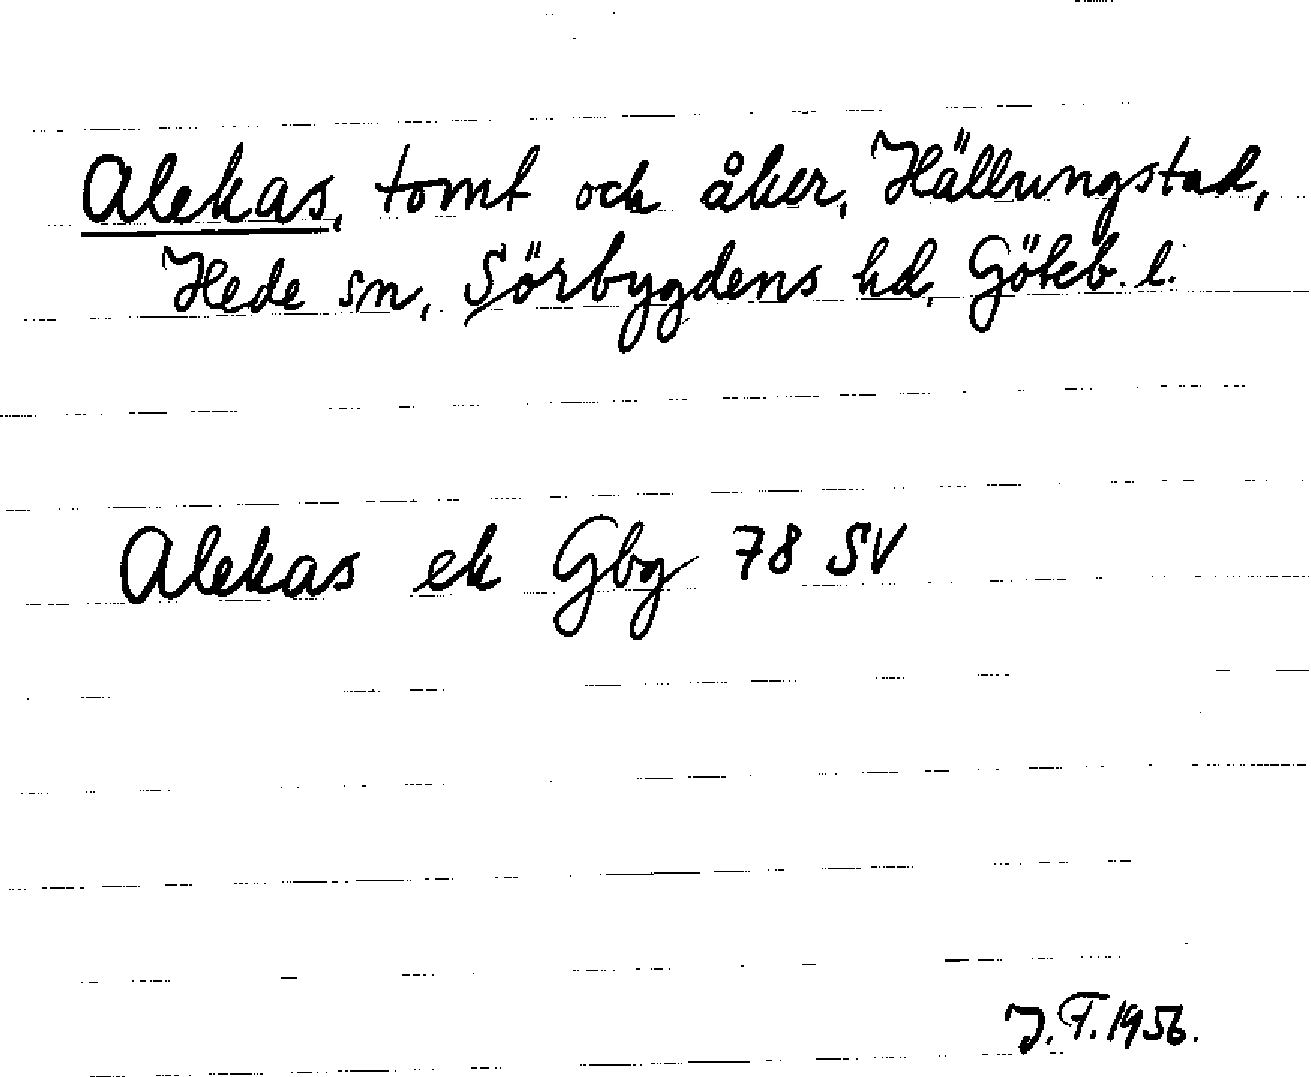 Alekas, tomt och åker, Hällungstad,
Hede sn, Sörbygdens hd, Göteb. l.
Alekas ek Gbg 78 SV
J. F. 1956.